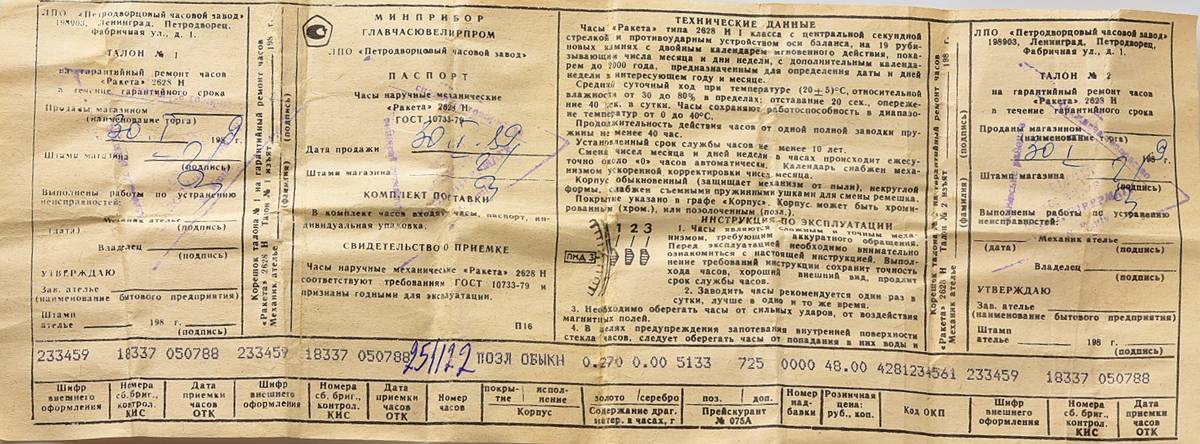 ЛПО «Петродворцовый часовой завод»
198903, Ленинград, Петродворец,
Фабричная ул., д. 1.
ТАЛОН № 1
на гарантийный ремонт часов
«Ракета» 2628 Н
в течение гарантийного срока
Продан магазином
(наименование торга)
30. I 198 9
Штамп магазина
(подпись)
Выполнены работы по устранению
неисправностей:
Механик ателье
(дата) (подпись)
Владелец
(подпись)
УТВЕРЖДАЮ
Зав. ателье
(наименование бытового предприятия)
Штамп
ателье 198 г.
(подпись)
Корешок талона № 1 на гарантийный ремонт часов
«Ракета» 2628 Н Талон № 1 изъят 198
Механик ателье (фамилия) (подпись)
МИНПРИБОР
ГЛАВЧАСЮВЕЛИРПРОМ
ЛПО «Петродворцовый часовой завод»
ПАСПОРТ
Часы наручные механические
«Ракета» 2628 Н
ГОСТ 10733-79
30. I. 89
Дата продажи
Штамп магазина
КОМПЛЕКТ ПОСТАВКИ
В комплект часов входят: часы, паспорт, ин-
дивидуальная упаковка.
СВИДЕТЕЛЬСТВО О ПРИЕМКЕ
Часы наручные механические «Ракета» 2628 Н
соответствуют требованиям ГОСТ 10733-79 и
признаны годными для эксплуатации.
П16
ТЕХНИЧЕСКИЕ ДАННЫЕ
Часы «Ракета» типа 2628 Н I класса с центральной секундной
стрелкой и противоударным устройством оси баланса, на 19 руби-
новых камнях с двойным календарем мгновенного действия, пока-
зывающим числа месяца и дни недели, с дополнительным календа-
рем до 2000 года, предназначенным для определения даты и дней
недели в интересующем году и месяце.
Средний суточный ход при температуре (20±5)°С, относительной
влажности от 30 до 80% в пределах: отставание 20 сек., опереже-
ние 40 сек. в сутки. Часы сохраняют работоспособность в диапазо-
не температур от 0 до 40°С.
Продолжительность действия часов от одной полной заводки пру-
жины не менее 40 час.
Установленный срок службы часов не менее 10 лет.
Смена чисел месяца и дней недели в часах происходит ежесу-
точно около «0» часов автоматически. Календарь снабжен меха-
низмом ускоренной корректировки чисел месяца.
Корпус обыкновенный (защищает механизм от пыли), некруглой
формы, снабжен съемными пружинными ушками для смены ремешка.
Покрытие указано в графе «Корпус». Корпус может быть хроми-
рованный (хром.) или позолоченный (поз.).
ИНСТРУКЦИЯ ПО ЭКСПЛУАТАЦИИ
1 2 3
ПНД 3
1. Часы являются сложным и точным меха-
низмом, требующим аккуратного обращения.
Перед эксплуатацией необходимо внимательно
ознакомиться с настоящей инструкцией. Выпол-
нение требований инструкции сохранит точность
хода часов, хороший внешний вид, продлит
срок службы часов.
2. Заводить часы рекомендуется один раз в
сутки, лучше в одно и то же время.
3. Необходимо оберегать часы от сильных ударов, от воздействия
магнитных полей.
4. В целях предупреждения запотевания внутренней поверхности
стекла часов, следует оберегать часы от попадания в них воды и
Корешок талона № 2 на гарантийный ремонт часов
«Ракета» 2628 Н Талон № 2 изъят 198 г.
Механик ателье (фамилия) (подпись)
ЛПО «Петродворцовый часовой завод»
198903, Ленинград, Петродворец,
Фабричная ул., д. 1.
ТАЛОН № 2
на гарантийный ремонт часов
«Ракета» 2628 Н
в течение гарантийного срока
Продан магазином
(наименование торга)
30. I 198 9
Штамп магазина
(подпись)
Выполнены работы по устранению
неисправностей:
Механик ателье
(дата) (подпись)
Владелец
(подпись)
УТВЕРЖДАЮ
Зав. ателье
(наименование бытового предприятия)
Штамп
ателье 198 г.
(подпись)
233459 18337 050788 233459 18337 050788 251122 ПОЗЛ ОБЫКН 0.270 0.00 5133 725 0000 48.00 4281234561 233459 18337 050788
Шифр внешнего оформления
Номера сб. бриг., контрол. КИС
Дата приемки часов ОТК
Шифр внешнего оформления
Номера сб. бриг., контрол. КИС
Дата приемки часов ОТК
Номер часов
покры-тие испол-нение
Корпус
золото серебро
Содержание драг. матер. в часах, г
поз. доп.
Прейскурант № 075А
Номер над-бавки
Розничная цена: руб., коп.
Код ОКП
Шифр внешнего оформления
Номера сб. бриг., контрол. КИС
Дата приемки часов ОТК